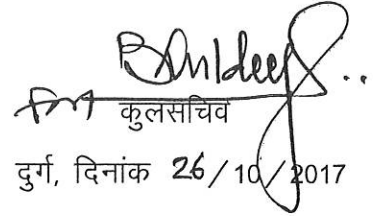 कुलसचिव
दुर्ग, दिनांक 26/10/2017